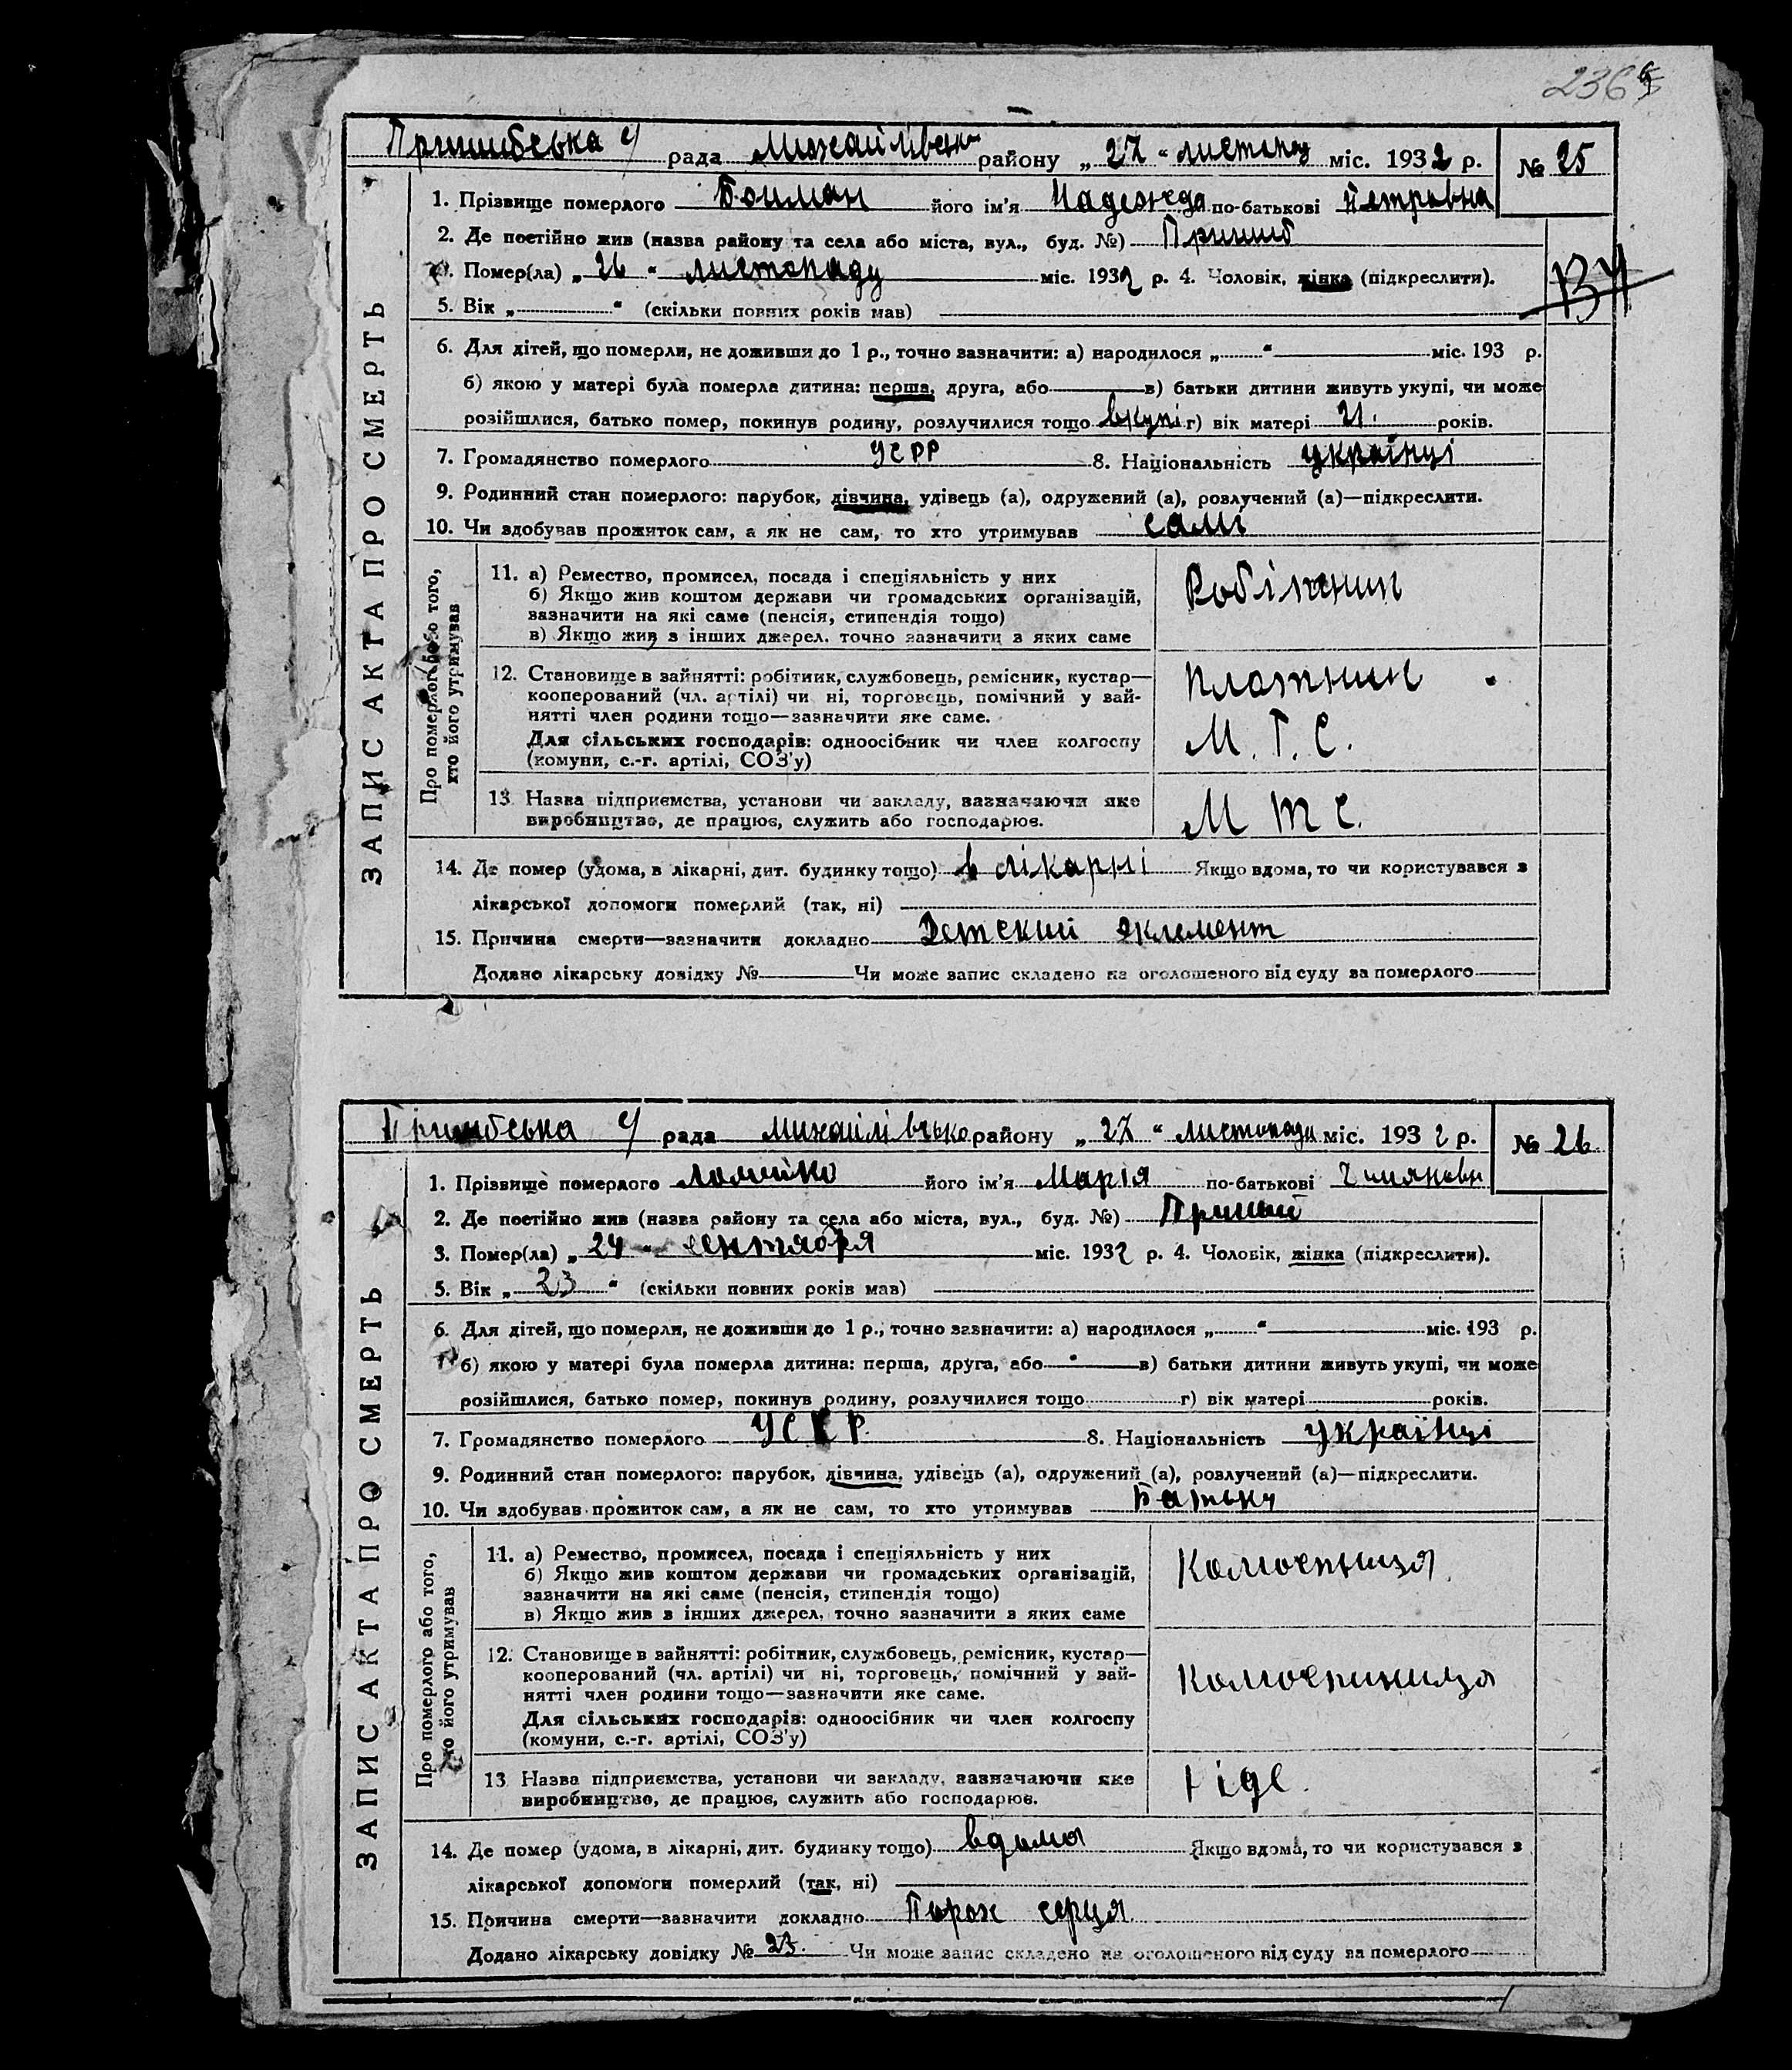 236
Пришибська с/ рада Михайлівськ району „ 27 “ листопад міс. 1932 р. № 25
ЗАПИС АКТА ПРО СМЕРТЬ
1. Прізвище померлого його ім'я Надежда по-батькові Петровна
2. Де постійно жив (назва району та села або міста, вул., буд. №) Пришиб
3. Помер(ла) „ 26 “ листопаду міс. 1932 р. 4. Чоловік, жінка (підкреслити).
5. Вік „ “ (скільки повних років мав)
6. Для дітей, що померли, не доживши до 1 р., точно зазначити: а) народилося „ “ міс. 193 р.
б) якою у матері була померла дитина: перша, друга, або в) батьки дитини живуть укупі, чи може
розійшлися, батько помер, покинув родину, розлучилися тощо вкупі г) вік матері 21. років.
7. Громадянство померлого УСРР 8. Національність українці
9. Родинний стан померлого: парубок, дівчина, удівець (а), одружений (а), розлучений (а)—підкреслити.
10. Чи здобував прожиток сам, а як не сам, то хто утримував самі
Про померлого або того, хто його утримував
11. а) Ремество, промисел, посада і спеціяльність у них
б) Якщо жив коштом держави чи громадських організацій,
зазначити на які саме (пенсія, стипендія тощо)
в) Якщо жив з інших джерел, точно зазначити з яких саме
12. Становище в зайнятті: робітник, службовець, ремісник, кустар—
кооперований (чл. артілі) чи ні, торговець, помічний у зай-
нятті член родини тощо—зазначити яке саме.
Для сільських господарів: одноосібник чи член колгоспу
(комуни, с.-г. артілі, СОЗ'у)
Плотник
М. Т. С.
13. Назва підприємства, установи чи закладу, зазначаючи яке
виробництво, де працює, служить або господарює.
М Т С.
14. Де помер (удома, в лікарні, дит. будинку тощо) в лікарні Якщо вдома, то чи користувався з
лікарської допомоги померлий (так, ні)
15. Причина смерти—зазначити докладно Детский
Додано лікарську довідку № Чи може запис складено на оголошеного від суду за померлого
Пришибська с/ рада Михайлівсько району „ 27 “ листопада міс. 1932 р. № 26
ЗАПИС АКТА ПРО СМЕРТЬ
1. Прізвище померлого його ім'я Марія по-батькові
2. Де постійно жив (назва району та села або міста, вул., буд. №) Пришиб
3. Помер(ла) „ 24 “ сентября міс. 1932 р. 4. Чоловік, жінка (підкреслити).
5. Вік „ 23 “ (скільки повних років мав)
6. Для дітей, що померли, не доживши до 1 р., точно зазначити: а) народилося „ “ міс. 193 р.
б) якою у матері була померла дитина: перша, друга, або в) батьки дитини живуть укупі, чи може
розійшлися, батько помер, покинув родину, розлучилися тощо г) вік матері років.
7. Громадянство померлого УСРР. 8. Національність українці
9. Родинний стан померлого: парубок, дівчина, удівець (а), одружений (а), розлучений (а)—підкреслити.
10. Чи здобував прожиток сам, а як не сам, то хто утримував Батьку
Про померлого або того, хто його утримував
11. а) Ремество, промисел, посада і спеціяльність у них
б) Якщо жив коштом держави чи громадських організацій,
зазначити на які саме (пенсія, стипендія тощо)
в) Якщо жив з інших джерел, точно зазначити з яких саме
12. Становище в зайнятті: робітник, службовець, ремісник, кустар—
кооперований (чл. артілі) чи ні, торговець, помічний у зай-
нятті член родини тощо—зазначити яке саме.
Для сільських господарів: одноосібник чи член колгоспу
(комуни, с.-г. артілі, СОЗ'у)
13. Назва підприємства, установи чи закладу, зазначаючи яке
виробництво, де працює, служить або господарює.
Ніде.
14. Де помер (удома, в лікарні, дит. будинку тощо) вдома Якщо вдома, то чи користувався з
лікарської допомоги померлий (так, ні)
15. Причина смерти—зазначити докладно Порок серця
Додано лікарську довідку № 23. Чи може запис складено на оголошеного від суду за померлого